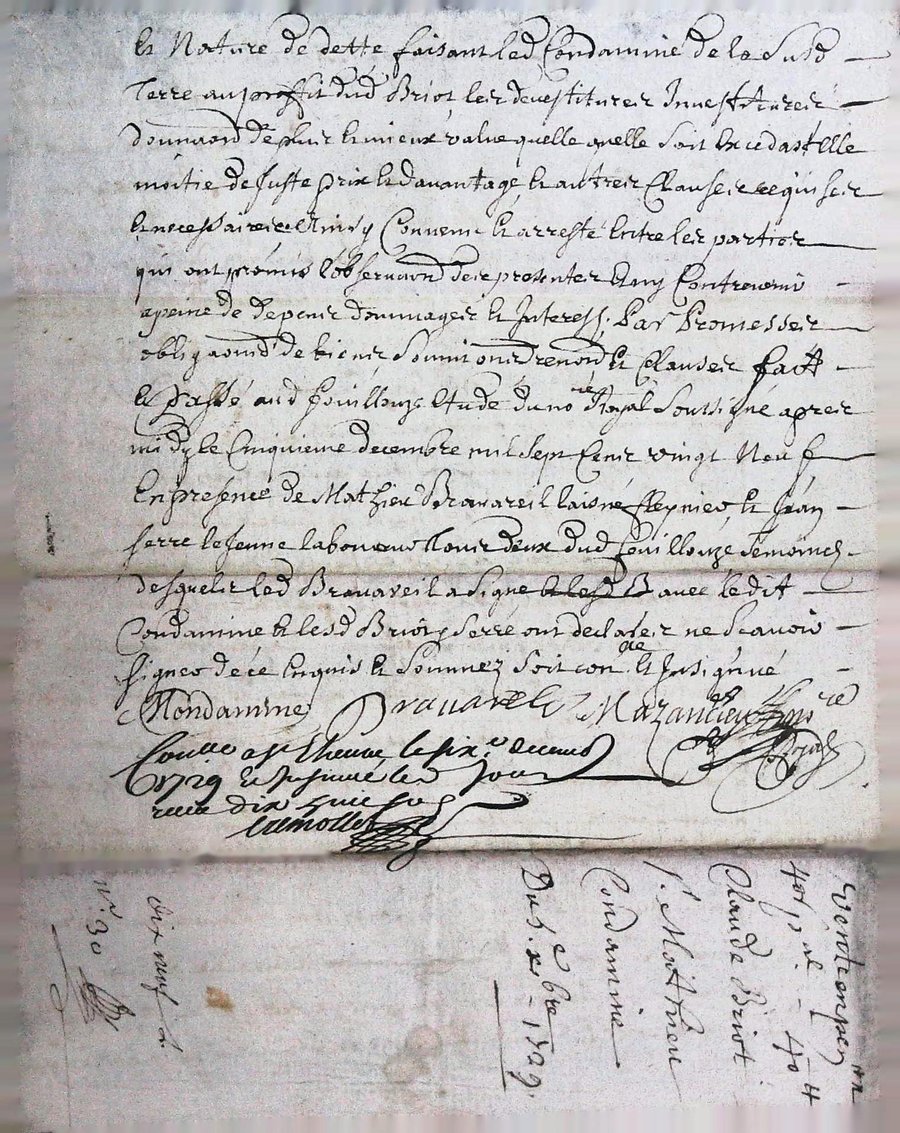 Et Nature de dette faisant led Condamine de la Susd
Terre au proffit dud Briot les devestitures Investitures
donnaond de plus et mieux value quelle quelle soit Excedastelle
moitie de Juste prix et davantage, et autres Clauses requises
et necessaires Ainsy Convenu et arresté Entre les parties
qui ont promis lobservaond de ce presenter et ny Contrevenir
apeine de depens dommages et Interess. Par Promesses
obligaond de biens soumionsd renond et Clauses fait
et Passé aud fouillouze Etude du nore Royal soussigne apres
midy le Cinquieme decembre mil sept Cens vingt Neuf
En presence de Mathieu Bravareil laisné et Jean
serre le Jeune laboureur tous deux dud fouillouze temoins
desquels led Bravareil a signe avec le dit
Condamine et lesd Briot serre ont declares ne scavoir
signer de ce Enquis et sommez soit conlle et Insignué
Condamine Bravareil Mazancieu nore
Royal
Conlle a st Etienne le six e decemb
1729 et Insinué led Jour
receu dix huit sols
Vente en pen
40 # p nl - 40 #
Claude Briot
Sr. Mathieu
Condamine
Du 5. xe bre 1729.
dix neuf s.
No. 30